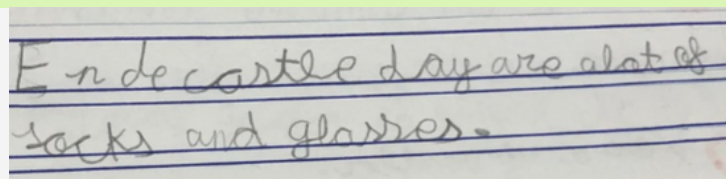 En de castle day are alot of
socks and glasses.